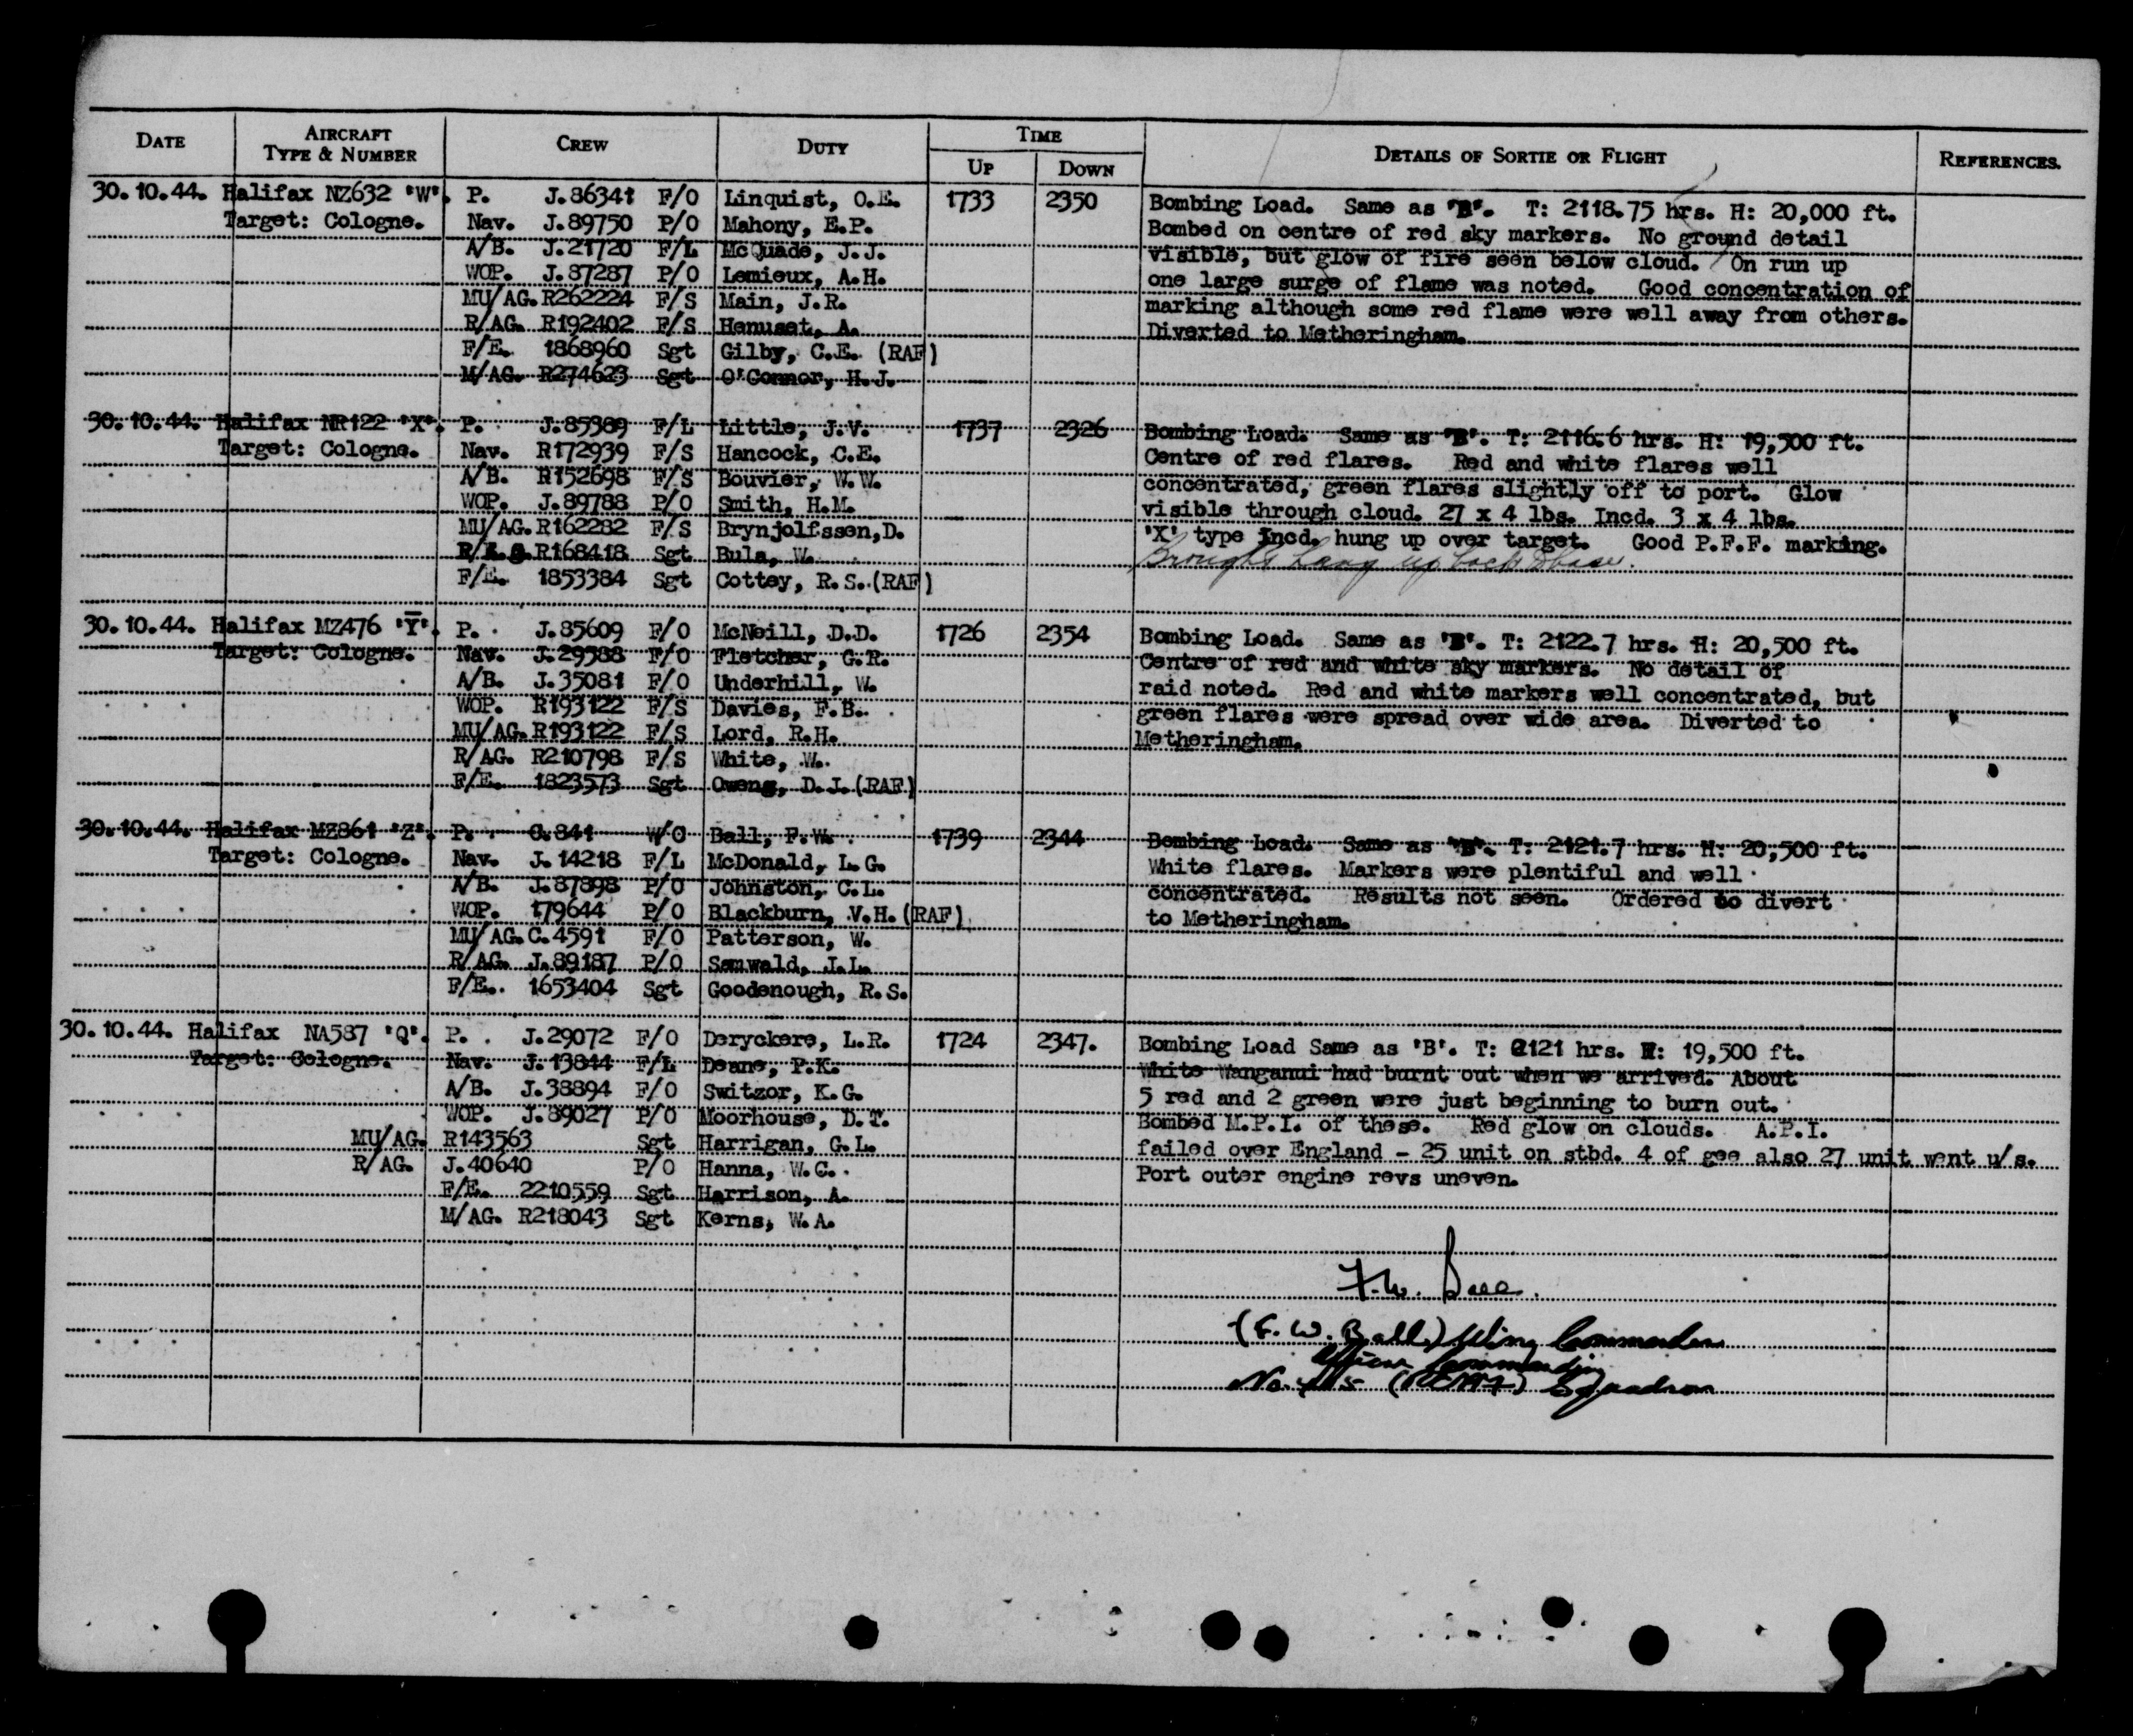 DATE AIRCRAFT TYPE & NUMBER CREW DUTY TIME UP DOWN DETAILS OF SORTIE OR FLIGHT REFERENCES.
30.10.44. Halifax NZ632 'W'. P. J.86341 F/O Linquist, O.E. 1733 2350 Bombing Load. Same as 'B'. T: 2118.75 hrs. H: 20,000 ft.
Target: Cologne. Nav. J.89750 P/O Mahony, E.P. Bombed on centre of red sky markers. No ground detail
A/B. J.21720 F/L McQuade, J.J. visible, but glow of fire seen below cloud. On run up
WOP. J.87287 P/O Lemieux, A.H. one large surge of flame was noted. Good concentration of
MU/AG. R262224 F/S Main, J.R. marking although some red flame were well away from others.
R/AG. R192402 F/S Hamuset, A. Diverted to Metheringham.
F/E. 1868960 Sgt Gilby, C.E. (RAF)
M/AG. R274623 Sgt O'Connor, H.J.
30.10.44. Halifax NR122 'X'. P. J.85389 F/L Little, J.V. 1737 2326 Bombing Load. Same as 'B'. T: 2116.6 hrs. H: 19,500 ft.
Target: Cologne. Nav. R172939 F/S Hancock, C.E. Centre of red flares. Red and white flares well
A/B. R152698 F/S Bouvier, W.W. concentrated, green flares slightly off to port. Glow
WOP. J.89788 P/O Smith, H.M. visible through cloud. 27 x 4 lbs. Incd. 3 x 4 lbs.
MU/AG. R162282 F/S Brynjolfssen, D. 'X' type Incd. hung up over target. Good P.F.F. marking.
R/A.G. R168418 Sgt Bula, W. Brought hang up back to base.
F/E. 1853384 Sgt Cottey, R.S. (RAF)
30.10.44. Halifax MZ476 'Y'. P. J.85609 F/O McNeill, D.D. 1726 2354 Bombing Load. Same as 'B'. T: 2122.7 hrs. H: 20,500 ft.
Target: Cologne. Nav. J.29588 F/O Fletcher, G.R. Centre of red and white sky markers. No detail of
A/B. J.35081 F/O Underhill, W. raid noted. Red and white markers well concentrated, but
WOP. R193122 F/S Davies, F.B. green flares were spread over wide area. Diverted to
MU/AG. R193122 F/S Lord, R.H. Metheringham.
R/AG. R210798 F/S White, W.
F/E. 1823573 Sgt Owens, D.J. (RAF)
30.10.44. Halifax MZ861 'Z'. P. C.841 W/O Ball, F.W. 1739 2344 Bombing Load. Same as 'B'. T: 2121.7 hrs. H: 20,500 ft.
Target: Cologne. Nav. J.14218 F/L McDonald, L.G. White flares. Markers were plentiful and well
A/B. J.87898 P/O Johnston, C.L. concentrated. Results not seen. Ordered to divert
WOP. 179644 P/O Blackburn, V.H. (RAF) to Metheringham.
MU/AG. C.4591 F/O Patterson, W.
R/AG. J.89187 P/O Samwald, J.L.
F/E. 1653404 Sgt Goodenough, R.S.
30.10.44. Halifax NA587 'Q'. P. J.29072 F/O Deryckere, L.R. 1724 2347. Bombing Load Same as 'B'. T: 2121 hrs. H: 19,500 ft.
Target: Cologne. Nav. J.13844 F/L Deane, P.K. White Wanganui had burnt out when we arrived. About
A/B. J.38894 F/O Switzor, K.G. 5 red and 2 green were just beginning to burn out.
WOP. J.89027 P/O Moorhouse, D.T. Bombed M.P.I. of these. Red glow on clouds. A.P.I.
MU/AG. R143563 Sgt Harrigan, G.L. failed over England - 25 unit on stbd. 4 of gee also 27 unit went u/s.
R/AG. J.40640 P/O Hanna, W.C. Port outer engine revs uneven.
F/E. 2210559 Sgt Harrison, A.
M/AG. R218043 Sgt Kerns, W.A.
F.W. Ball.
(F.W. Ball) Wing Commander
Officer Commanding
No. 415 (RCAF) Squadron